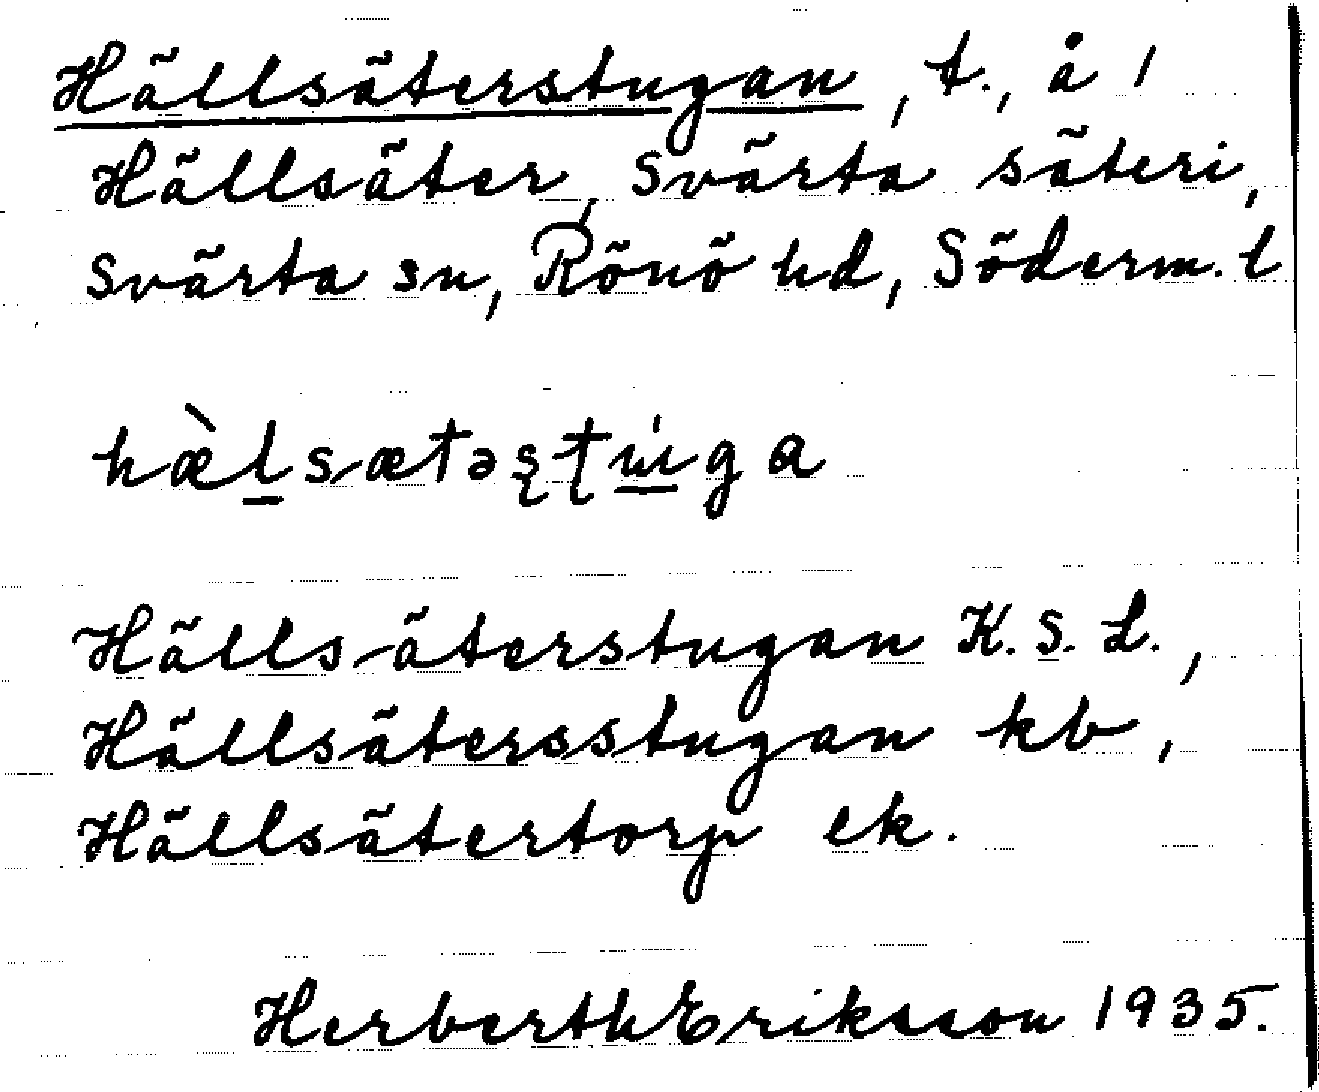 Hällsäterstugan, t., å 1
Hällsäter, Svärta säteri,
Svärta sn, Rönö hd, Söderm. l
hæ̀l̠sætəʂʈu̠̍ga
Hällsäterstugan K.S.L.,
Hällsätersstugan kb,
Hällsätertorp ek.
Herberth Eriksson 1935.